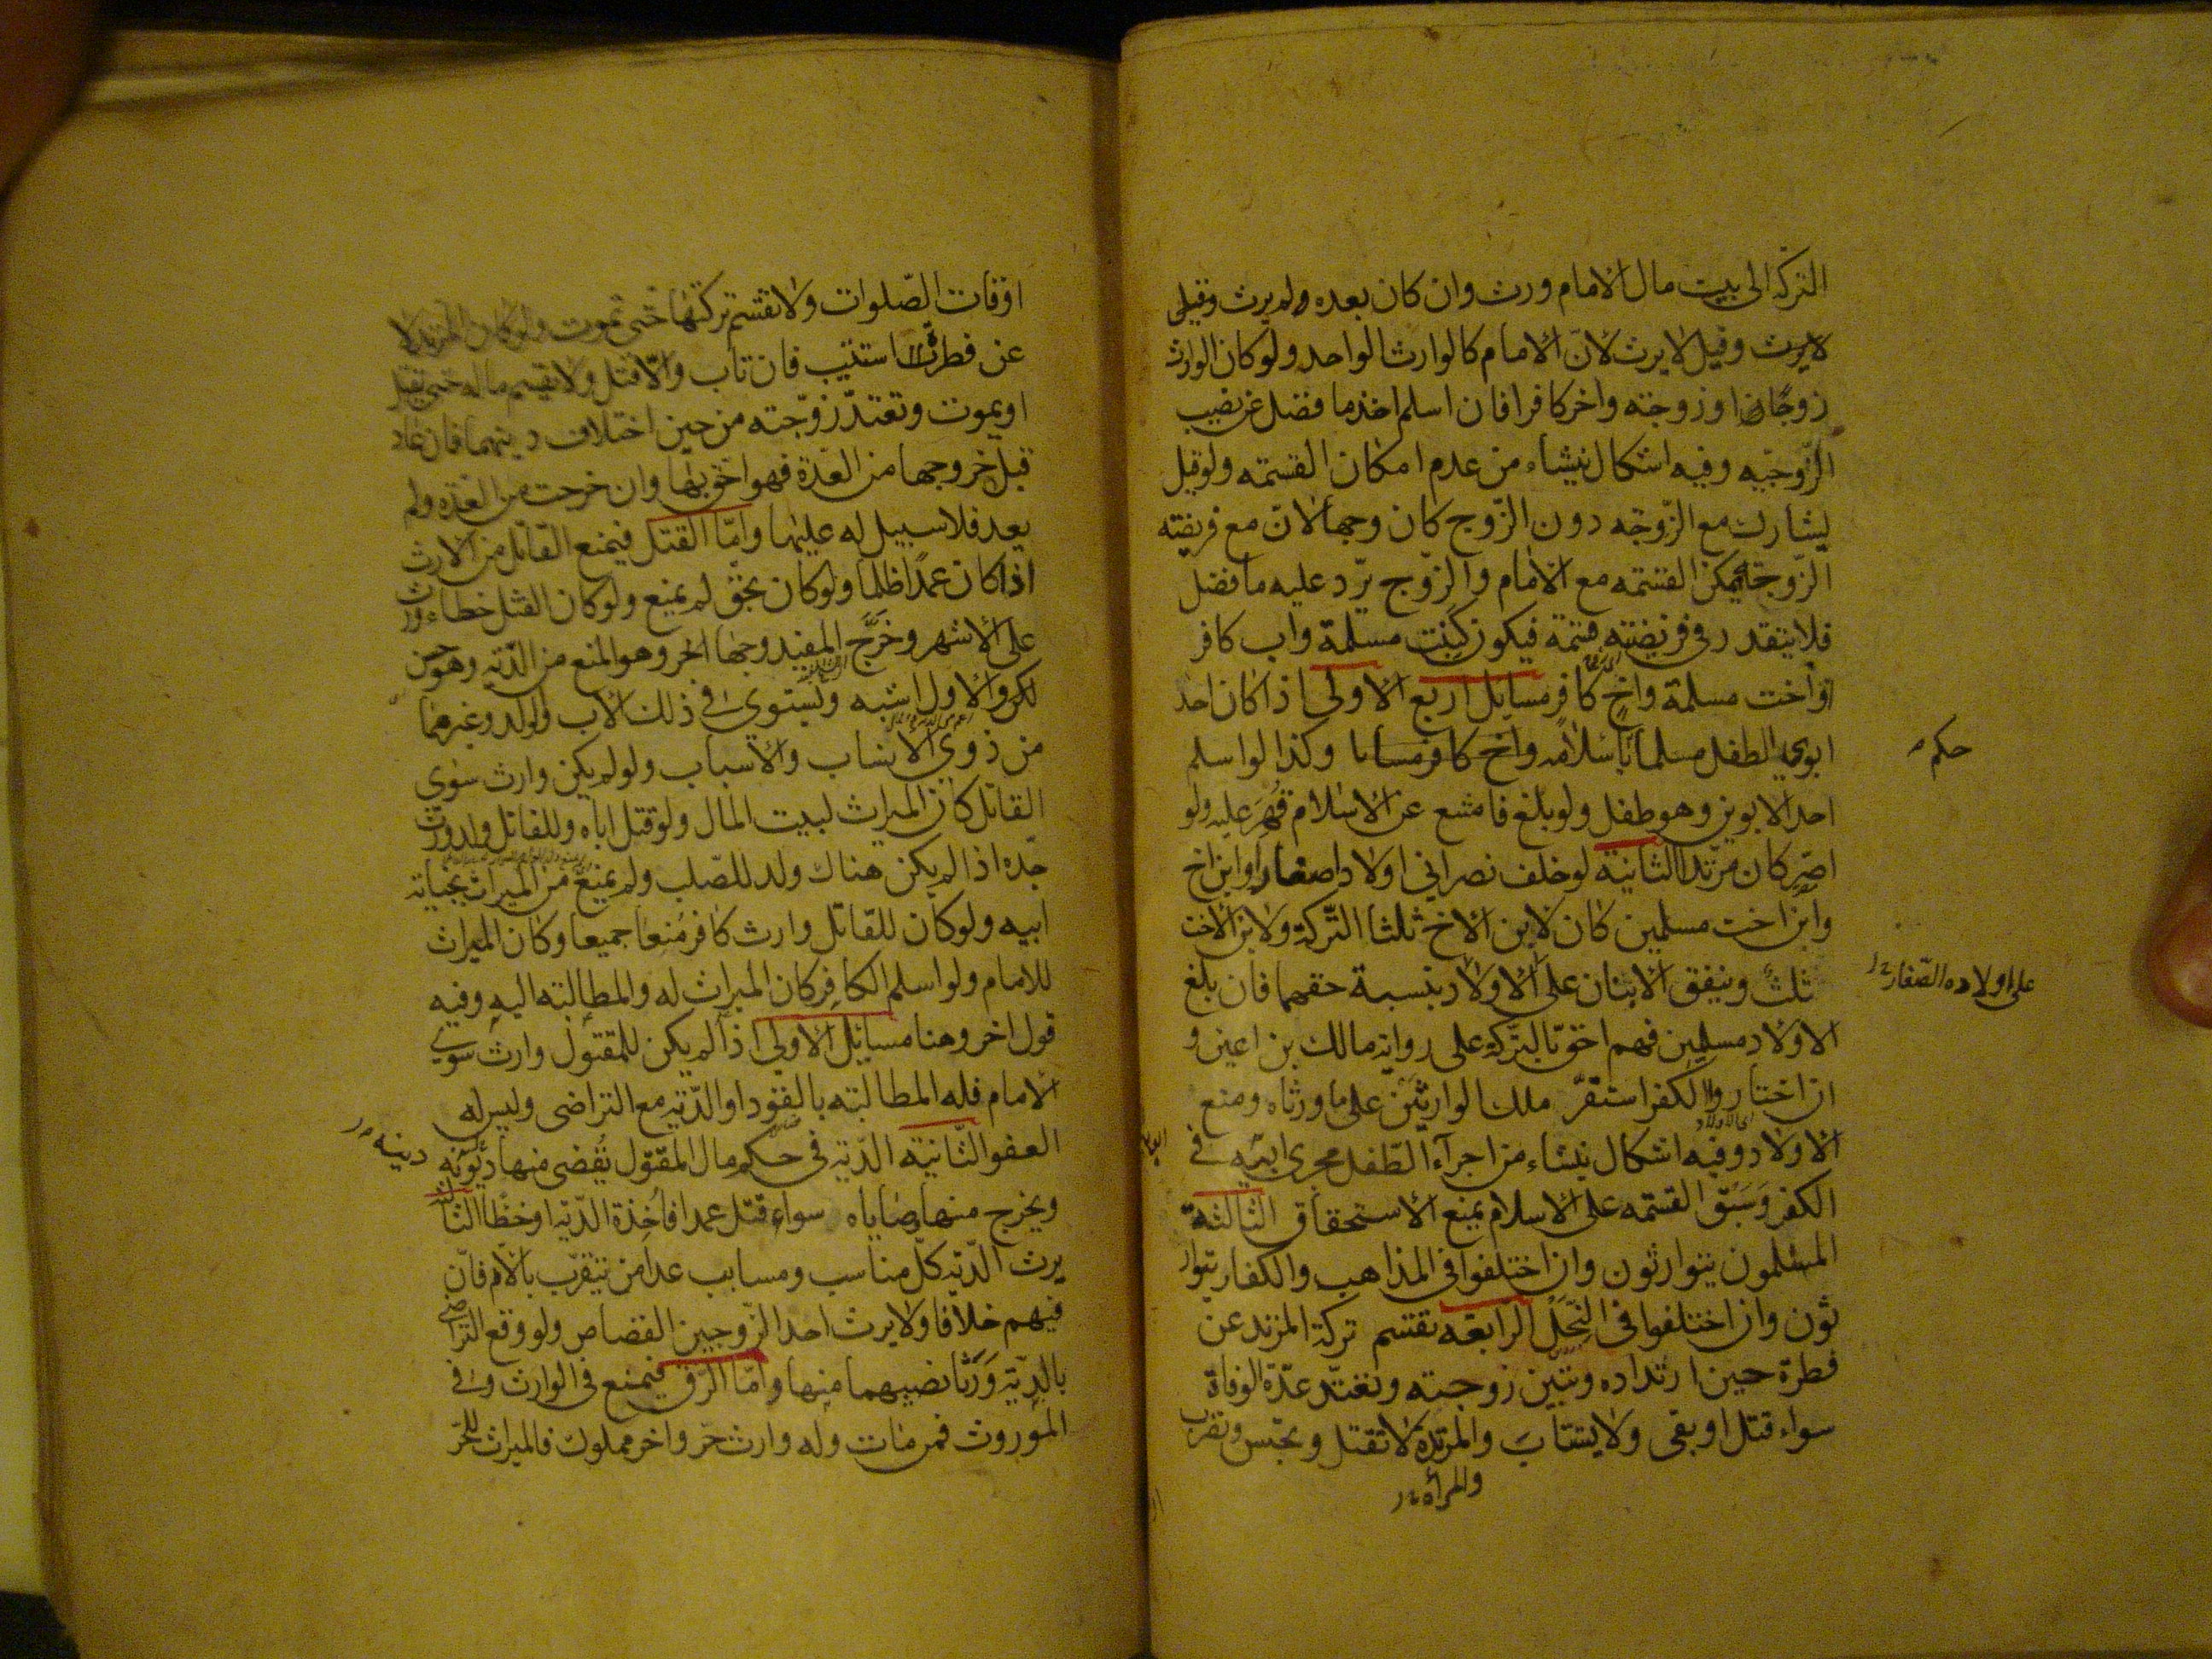 التركة الى بيت مال الامام ورث وان كان بعده ولم يرث وقيل
لا يرث وقيل لا يرث لان الامام كالوارث الواحد ولو كان الوارث
زوجا او زوجته واخر كافرا فان اسلم اخذ ما فضل عن نصيب
الزوجيه وفيه اشكال ينشاء من عدم امكان القسمة ولو قيل
يشارك مع الزوجه دون الزوج كان وجها لان مع فريضته
الزوجة يمكن القسمة مع الامام والزوج يرد عليه ما فضل
فلا يتقدر في فريضته قسمة فيكون كبنت مسلمة واب كافر
او اخت مسلمة واخ كافر مسايل اربع الاولى اذا كان احد
ابوي الطفل مسلما باسلامه واخ كافر مسايا وكذا لو اسلم
حكم
احد الابوين وهو طفل ولو بلغ فامتنع عن الاسلام قهر عليه ولو
اصر كان مرتدا الثانية لو خلف نصراني اولادا صغارا وابن اخ
وابن اخت مسلمين كان لابن الاخ ثلثا التركة ولابن الاخت
ثلث وينفق الابنان على الاولاد بنسبة حقهما فان بلغ
على اولاده الصغار
الاولاد مسلمين فهم احق بالتركة على رواية مالك بن اعين و
ان اختاروا الكفر استقر ملك الوارثين على ما ورثاه ومنع
الاولاد وفيه اشكال ينشاء من اجراء الطفل مجرى ابيه في
الكفر وسبق القسمه على الاسلام يمنع الاستحقاق الثالثة
المسلمون يتوارثون وان اختلفوا في المذاهب والكفار يتوار
ثون وان اختلفوا في النحل الرابعه تقتسم تركة المرتد عن
فطرة حين ارتداده وتبين زوجته وتعتد عدة الوفاة
سواء قتل او بقى ولا يستتاب والمرتدة لا تقتل وتحبس وتضرب
والمراة
اوقات الصلوات ولا تقسم تركتها حتى تموت ولو كان المرتد لا
عن فطرة استتيب فان تاب والا قتل ولا تقسم ماله حتى يقتل
او يموت وتعتد زوجته من حين اختلاف دينهما فان عاد
قبل خروجها من العدة فهو احق بها وان خرجت من العده ولم
يعد فلا سبيل له عليها واما القتل فيمنع القاتل من الارث
اذا كان عمدا ظلما ولو كان بحق لم يمنع ولو كان القتل خطاء ورث
على الاشهر وخرج المفيد وجها اخر وهو المنع من الديه وهو حسن
لكن والاول اشبه ويستوي في ذلك الاب والولد وغيرهما
من ذوي الانساب والاسباب ولو لم يكن وارث سوى
القاتل كان الميراث لبيت المال ولو قتل اباه وللقاتل ولد ورث
جده اذا لم يكن هناك ولد للصلب ولم يمنع من الميراث بجناية
ابيه ولو كان للقاتل وارث كافر منعا جميعا وكان الميراث
للامام ولو اسلم الكافر كان الميراث له والمطالبته اليه وفيه
قول اخر وهنا مسايل الاولى اذا لم يكن للمقتول وارث سوى
الامام فله المطالبته بالقود او الديه مع التراضى وليس له
العفو الثانية الدية في حكم مال المقتول يقضى منها ديونه
دينه
ويخرج منها وصاياه سواء قتل عمدا فاخذة الديه او خطا الثالثه
يرث الديه كل مناسب ومسابب عدا من يتقرب بالام فان
فيهم خلافا ولا يرث احد الزوجين القصاص ولو وقع التراضى
بالدية ورثا نصيبهما منها واما الرق فيمنع في الوارث وفي
الموروث فمن مات وله وارث حر واخر مملوك فالميراث للحر